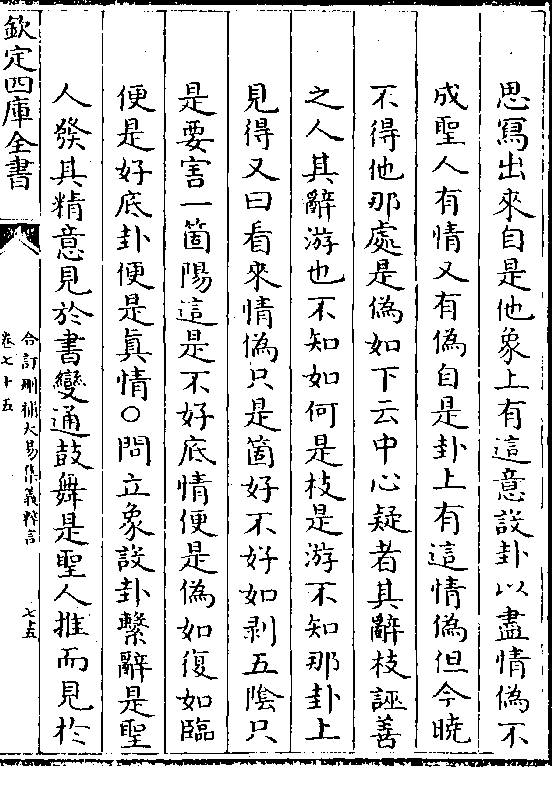 思寫出來自是他象上有這意設卦以盡情偽不
成聖人有情又有偽自是卦上有這情偽但今曉
不得他那處是偽如下云中心疑者其辭枝誣善
之人其辭游也不知如何是枝是游不知那卦上
見得又曰看來情偽只是箇好不好如剥五陰只
是要害一箇陽這是不好底情便是偽如復如臨
便是好底卦便是真情○問立象設卦繫辭是聖
人發其精意見於書變通鼓舞是聖人推而見於
欽定四庫全書
合訂刪補大易集義粹言
卷七十五
七五